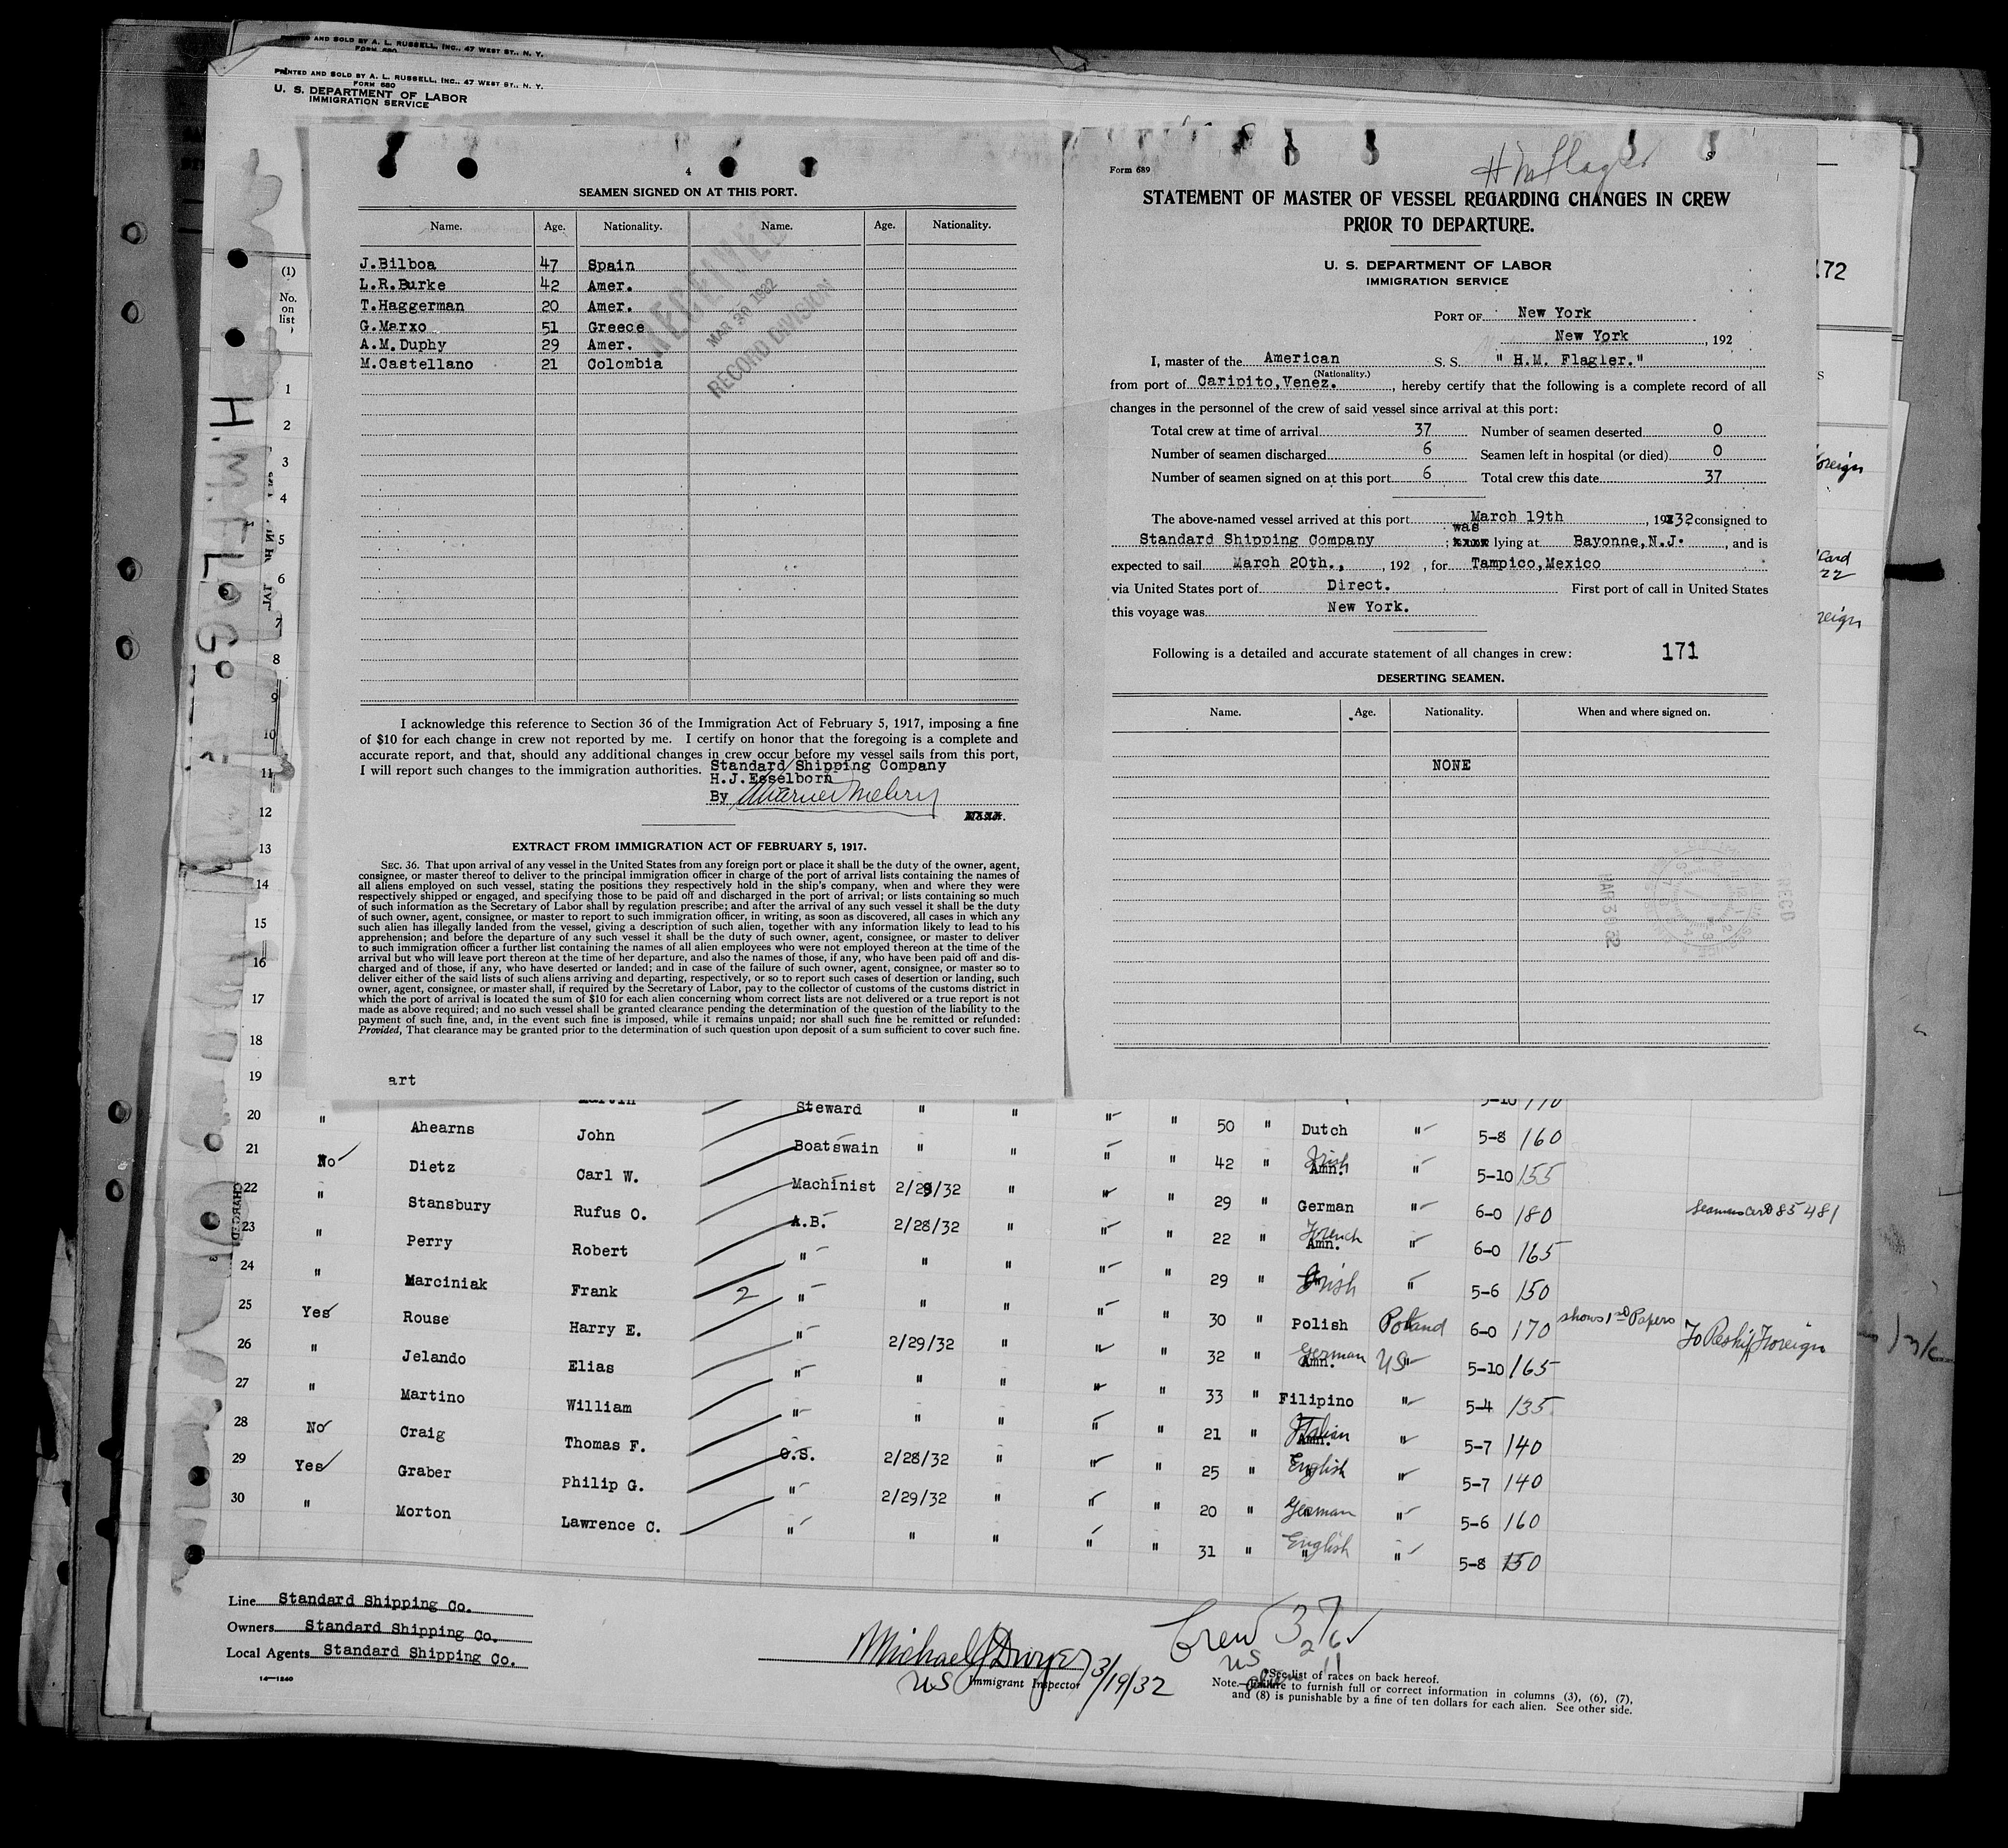 PRINTED AND SOLD BY A. L. RUSSELL, INC., 47 WEST ST., N. Y.
FORM 680
U. S. DEPARTMENT OF LABOR
IMMIGRATION SERVICE
(1)
No.
on
list
H. M. FLAG
4
SEAMEN SIGNED ON AT THIS PORT.
Name. Age. Nationality. Name. Age. Nationality.
J.Bilboa 47 Spain
L.R.Burke 42 Amer.
T.Haggerman 20 Amer.
G.Marxo 51 Greece
A.M.Duphy 29 Amer.
M.Castellano 21 Colombia
RECEIVED
MAR 30 1932
RECORD DIVISION
I acknowledge this reference to Section 36 of the Immigration Act of February 5, 1917, imposing a fine
of $10 for each change in crew not reported by me. I certify on honor that the foregoing is a complete and
accurate report, and that, should any additional changes in crew occur before my vessel sails from this port,
I will report such changes to the immigration authorities.
Standard Shipping Company
H.J.Esselborn
By
EXTRACT FROM IMMIGRATION ACT OF FEBRUARY 5, 1917.
SEC. 36. That upon arrival of any vessel in the United States from any foreign port or place it shall be the duty of the owner, agent,
consignee, or master thereof to deliver to the principal immigration officer in charge of the port of arrival lists containing the names of
all aliens employed on such vessel, stating the positions they respectively hold in the ship's company, when and where they were
respectively shipped or engaged, and specifying those to be paid off and discharged in the port of arrival; or lists containing so much
of such information as the Secretary of Labor shall by regulation prescribe; and after the arrival of any such vessel it shall be the duty
of such owner, agent, consignee, or master to report to such immigration officer, in writing, as soon as discovered, all cases in which any
such alien has illegally landed from the vessel, giving a description of such alien, together with any information likely to lead to his
apprehension; and before the departure of any such vessel it shall be the duty of such owner, agent, consignee, or master to deliver
to such immigration officer a further list containing the names of all alien employees who were not employed thereon at the time of the
arrival but who will leave port thereon at the time of her departure, and also the names of those, if any, who have been paid off and dis-
charged and of those, if any, who have deserted or landed; and in case of the failure of such owner, agent, consignee, or master so to
deliver either of the said lists of such aliens arriving and departing, respectively, or so to report such cases of desertion or landing, such
owner, agent, consignee, or master shall, if required by the Secretary of Labor, pay to the collector of customs of the customs district in
which the port of arrival is located the sum of $10 for each alien concerning whom correct lists are not delivered or a true report is not
made as above required; and no such vessel shall be granted clearance pending the determination of the question of the liability to the
payment of such fine, and, in the event such fine is imposed, while it remains unpaid; nor shall such fine be remitted or refunded:
Provided, That clearance may be granted prior to the determination of such question upon deposit of a sum sufficient to cover such fine.
art
Form 689
H M Flagler
STATEMENT OF MASTER OF VESSEL REGARDING CHANGES IN CREW
PRIOR TO DEPARTURE.
U. S. DEPARTMENT OF LABOR
IMMIGRATION SERVICE
PORT OF New York
New York , 192
I, master of the American S. S. " H.M. Flagler."
(Nationality.)
from port of Caripito,Venez. , hereby certify that the following is a complete record of all
changes in the personnel of the crew of said vessel since arrival at this port:
Total crew at time of arrival 37 Number of seamen deserted 0
Number of seamen discharged 6 Seamen left in hospital (or died) 0
Number of seamen signed on at this port 6 Total crew this date 37
The above-named vessel arrived at this port March 19th , 1932 consigned to
was
Standard Shipping Company ; xxxx lying at Bayonne,N.J. , and is
expected to sail March 20th., , 192 , for Tampico,Mexico
via United States port of Direct. First port of call in United States
this voyage was New York.
Following is a detailed and accurate statement of all changes in crew: 171
DESERTING SEAMEN.
Name. Age. Nationality. When and where signed on.
NONE
REC'D
172
1
2
3
4
5
6
7
8
9
10
11
12
13
14
15
16
17
18
19
Martin Steward " " " 5-10 170
20 " Ahearns John Boatswain " " " " 50 " Dutch " 5-8 160
21 No Dietz Carl W. Machinist 2/29/32 " " " 42 " Irish Amn. " 5-10 155
22 " Stansbury Rufus O. A.B. 2/28/32 " " " 29 " German " 6-0 180 Seamans Card 85481
23 " Perry Robert " " " " " 22 " French Amn. " 6-0 165
24 " Marciniak Frank 2 " " " " " 29 " Irish " 5-6 150
25 Yes Rouse Harry E. " 2/29/32 " " " 30 " Polish Poland 6-0 170 shows 1st Papers To Reship Foreign
26 " Jelando Elias " " " " " 32 " German Amn. US 5-10 165
27 " Martino William " " " " " 33 " Filipino " 5-4 135
28 No Craig Thomas F. O.S. 2/28/32 " " " 21 " Italian Amn. " 5-7 140
29 Yes Graber Philip G. " 2/29/32 " " " 25 " English " 5-7 140
30 " Morton Lawrence C. " " " " " 20 " German " 5-6 160
31 " English " 5-8 150
Line Standard Shipping Co.
Owners Standard Shipping Co.
Local Agents Standard Shipping Co.
14—1240
Michael J Dwyer 3/19/32
US Immigrant Inspector
Crew 37
US 26
alien 11
*See list of races on back hereof.
Note.—Failure to furnish full or correct information in columns (3), (6), (7),
and (8) is punishable by a fine of ten dollars for each alien. See other side.